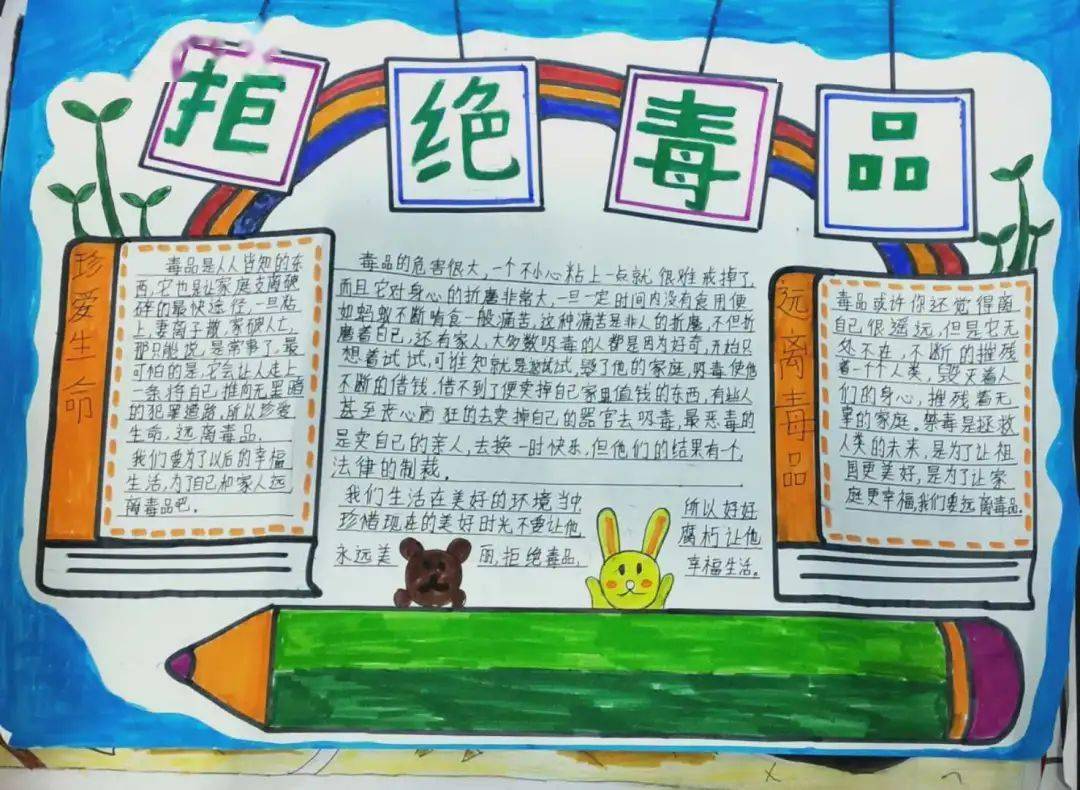 拒绝毒品
珍爱生命
毒品是人人皆知的东
西,它也是让家庭支离破
碎的最快途径,一旦粘
上,妻离子散,家破人亡,
那只能说是常事了,最
可怕的是,它会让人走上
一条将自己推向无黑暗
的犯罪道路,所以珍爱
生命,远离毒品,
我们要为了以后的幸福
生活,为了自己和家人远
离毒品吧。
毒品的危害很大,一个不小心粘上一点就很难戒掉了,
而且它对身心的折磨非常大,一旦一定时间内没有食用便
如蚂蚁不断啃食一般痛苦,这种痛苦是非人的折磨,不但折
磨着自己,还有家人,大多数吸毒的人都是因为好奇,开始只
想着试试,可谁知就是试试,毁了他的家庭,吸毒使他
不断的借钱,借不到了便卖掉自己家里值钱的东西,有些人
甚至丧心病狂的去卖掉自己的器官去吸毒,最恶毒的
是卖自己的亲人,去换一时快乐,但他们的结果有个,
法律的制裁。
我们生活在美好的环境当中 所以好好
珍惜现在的美好时光不要让他 腐朽让他
永远美 丽,拒绝毒品, 幸福生活。
远离毒品
毒品或许你还觉得离
自己很遥远,但是它无
处不在,不断的摧残
着一个个人类,毁灭着人
们的身心,摧残着无
辜的家庭。禁毒是拯救
人类的未来,是为了让祖
国更美好,是为了让家
庭更幸福,我们要远离毒品。